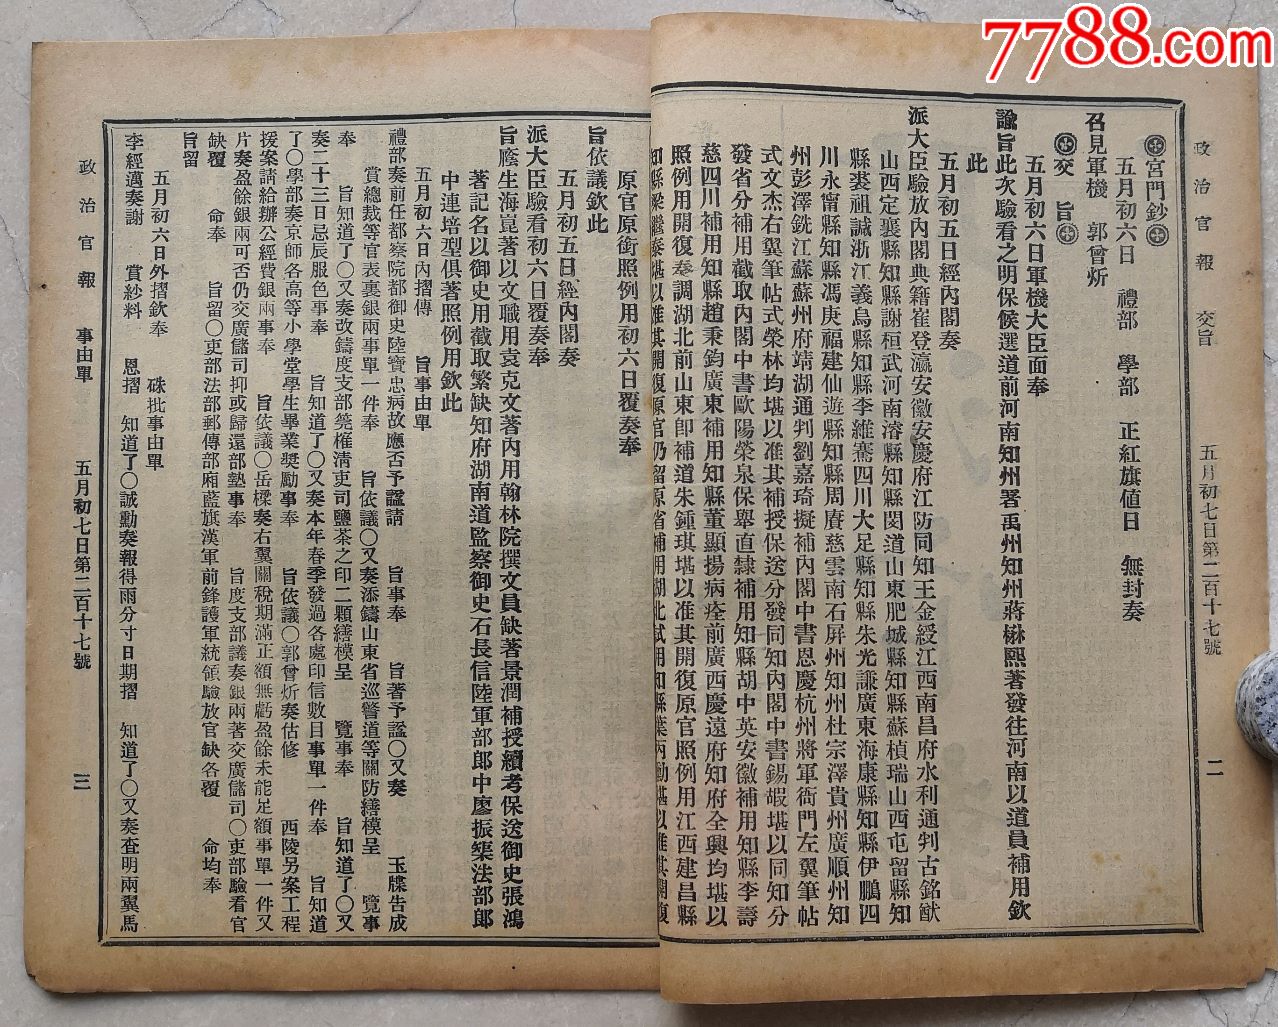 7788.com
政治官報 交旨 五月初七日第二百十七號 二
宮門鈔
五月初六日 禮部 學部 正紅旗值日 無封奏
召見軍機 郭曾炘
交 旨
五月初六日軍機大臣面奉
諭旨此次驗看之明保候選道前河南知州署禹州知州蔣楙熙著發往河南以道員補用欽
此
五月初五日經內閣奏
派大臣驗放內閣典籍崔登瀛安徽安慶府江防同知王金綬江西南昌府水利通判古銘猷
山西定襄縣知縣謝桓武河南濬縣知縣閔道山東肥城縣知縣蘇楨瑞山西屯留縣知
縣裘祖誠浙江義烏縣知縣李維藩四川大足縣知縣朱光謙廣東海康縣知縣伊鵬四
川永甯縣知縣馮庚福建仙遊縣知縣周賡慈雲南石屏州知州杜宗澤貴州廣順州知
州彭澤銑江蘇蘇州府靖湖通判劉嘉琦擬補內閣中書恩慶杭州將軍衙門左翼筆帖
式文杰右翼筆帖式榮林均堪以准其補授保送分發同知內閣中書錫嘏堪以同知分
發省分補用截取內閣中書歐陽榮泉保舉直隸補用知縣胡中英安徽補用知縣李壽
慈四川補用知縣趙秉鈞廣東補用知縣董顯揚病痊前廣西慶遠府知府全興均堪以
照例用開復奉調湖北前山東卽補道朱鍾琪堪以准其開復原官照例用江西建昌縣
知縣梁繼泰堪以准其開復原官仍留原省補用湖北試用知縣葉丙勳堪以准其開復
原官原銜照例用初六日覆奏奉
旨依議欽此
五月初五日經內閣奏
派大臣驗看初六日覆奏奉
旨廕生海崑著以文職用袁克文著內用翰林院撰文員缺著景潤補授續考保送御史張鴻
著記名以御史用截取繁缺知府湖南道監察御史石長信陸軍部郎中廖振榘法部郎
中連培型俱著照例用欽此
五月初六日內摺傳 旨事由單
禮部奏前任都察院都御史陸寶忠病故應否予諡請 旨事奉 旨著予諡〇又奏 玉牒告成
賞總裁等官表裏銀兩事單一件奉 旨依議〇又奏添鑄山東省巡警道等關防繕模呈 覽事
奉 旨知道了〇又奏改鑄度支部筦榷清吏司鹽茶之印二顆繕模呈 覽事奉 旨知道了〇又
奏二十三日忌辰服色事奉 旨知道了〇又奏本年春季發過各處印信數目事單一件奉 旨知道
了〇學部奏京師各高等小學堂學生畢業獎勵事奉 旨依議〇郭曾炘奏估修 西陵另案工程
援案請給辦公經費銀兩事奉 旨依議〇岳樑奏右翼關稅期滿正額無虧盈餘未能足額事單一件又
片奏盈餘銀兩可否仍交廣儲司抑或歸還部墊事奉 旨度支部議奏銀兩著交廣儲司〇吏部驗看官
缺覆 命奉 旨留〇吏部法部郵傳部廂藍旗漢軍前鋒護軍統領驗放官缺各覆 命均奉
旨留
五月初六日外摺欽奉 硃批事由單
李經邁奏謝 賞紗料 恩摺 知道了〇誠勳奏報得雨分寸日期摺 知道了〇又奏查明兩翼馬
政治官報 事由單 五月初七日第二百十七號 三